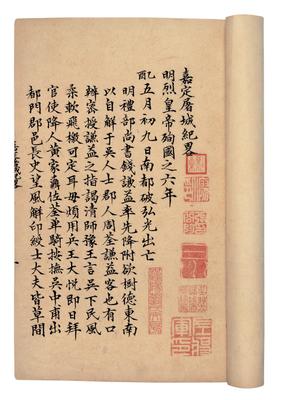 嘉定屠城紀畧
明烈皇帝殉國之六年
酉五月初九日南都破弘光出亡
明禮部尚書錢謙益率先降附欲樹德東南
以自解于吳人士郡人周荃謙益客也有口
辯密授謙益之指謁清師豫王言吳下民風
柔軟飛檄可定毋煩用兵王大悅即日拜
官使降人黃家鼒偕荃單騎按撫吳中甫出
都門郡邑長吏望風解印綬士大夫皆草間